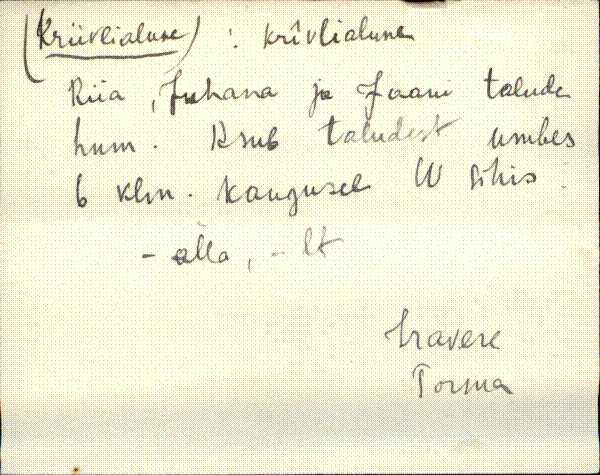 (Kriivlialune) : krîvlialune
Riia, Juhana ja Jaani talude
hum. Asub taludest umbes
6 klm. kaugusel W sihis.
- alla, - lt
Iravere
Torma